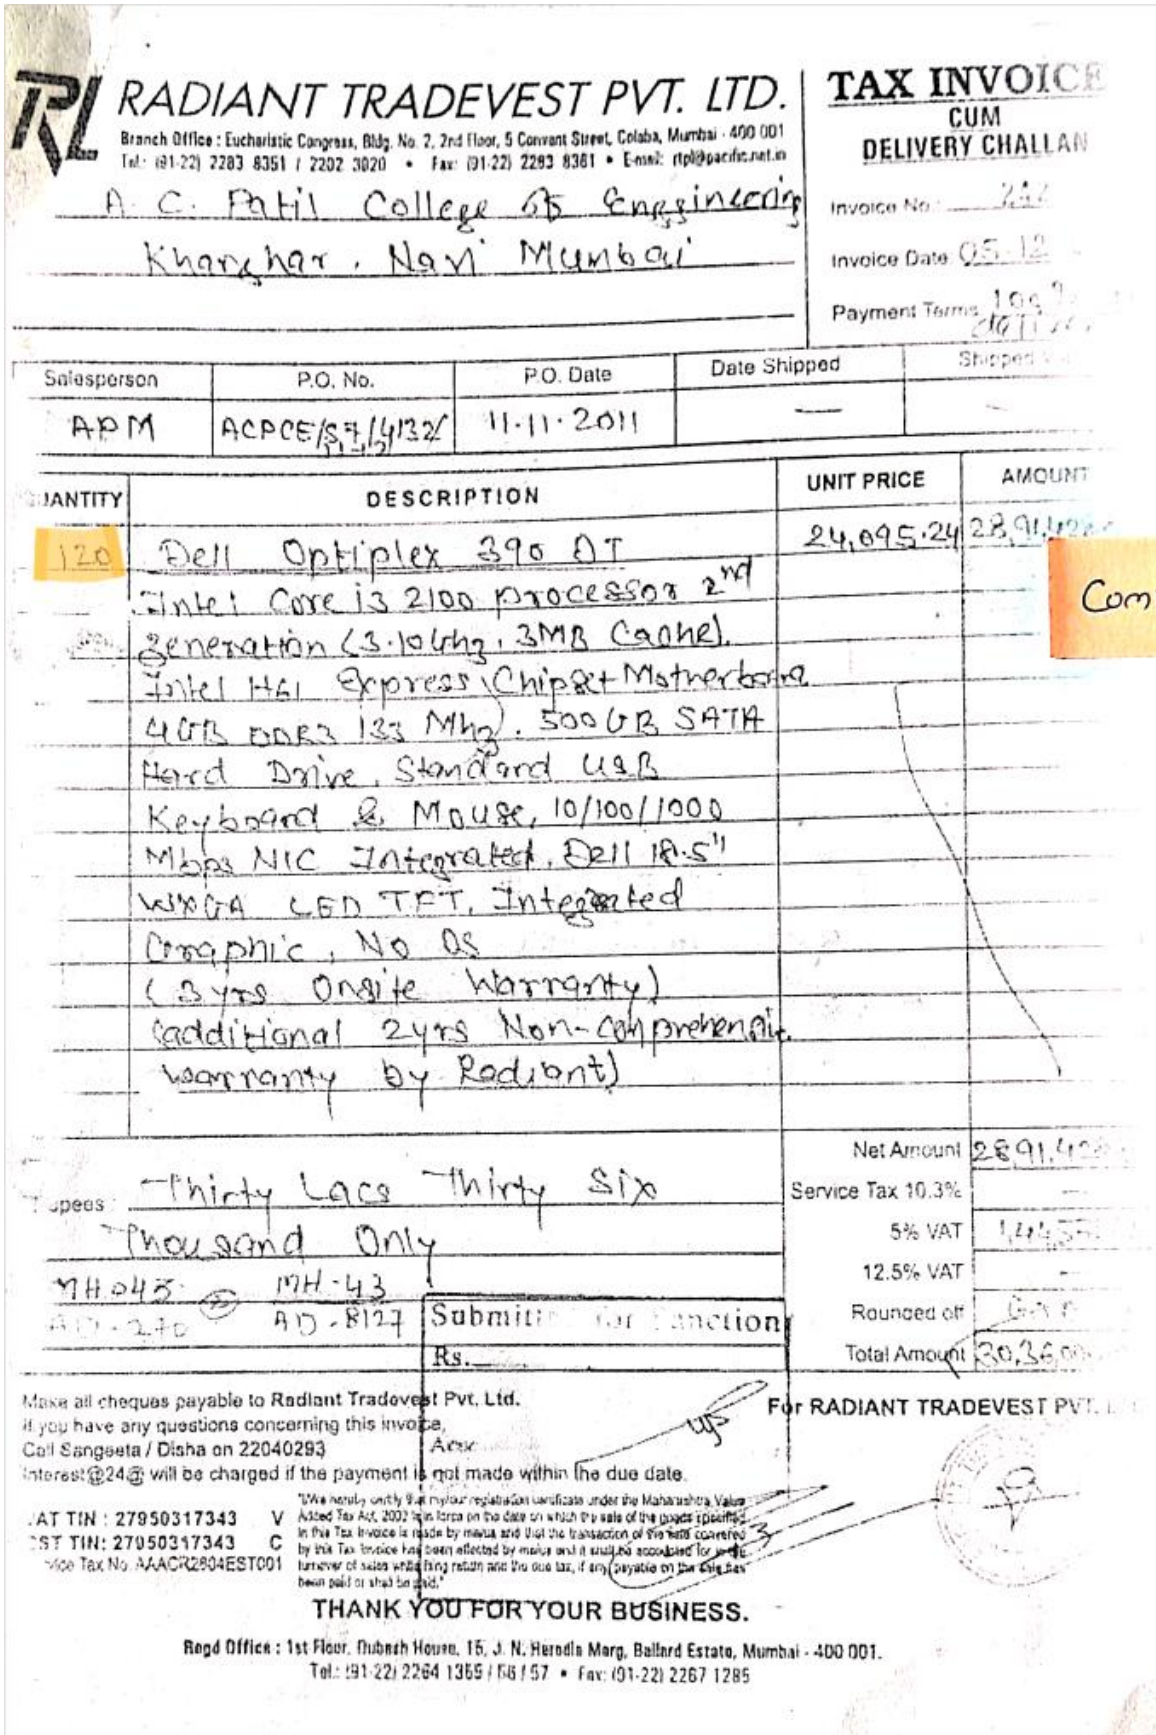 RL RADIANT TRADEVEST PVT. LTD.
Branch Office : Eucharistic Congress, Bldg. No. 2, 2nd Floor, 5 Convent Street, Colaba, Mumbai - 400 001
Tel.: (91-22) 2283 8351 / 2202 3020 • Fax: (91-22) 2283 8361 • E-mail: rtpl@pacific.net.in
TAX INVOICE
CUM
DELIVERY CHALLAN
A. C. Patil College of Enggineering
Kharghar, Navi Mumbai
Invoice No.:
Invoice Date 05-12
Payment Terms
Salesperson P.O. No. P.O. Date Date Shipped Shipped
APM 11.11.2011 —
UANTITY DESCRIPTION UNIT PRICE AMOUNT
120 Dell Optiplex 390 DT 24,095.24 28,91,428
Intel Core i3 2100 processor 2nd
generation (3.10Ghz, 3MB Cache).
Com
Intel H61 Express Chipset Motherboard
4GB DDR3 133 Mhz, 500GB SATA
Hard Drive, Standard USB
Keyboard & Mouse, 10/100/1000
Mbps NIC Integrated, Dell 18.5"
WXGA LED TFT, Integrated
Graphic, No OS
(3yrs Onsite Warranty)
(additional 2yrs Non-comprehensive
warranty by Radiant)
Net Amount 28,91,428
upees : Thirty Lacs Thirty Six
Service Tax 10.3% —
Thousand Only
5% VAT
12.5% VAT —
MH043 MH-43
AD-270 AD-8127
Rounded off
Total Amount 30,36,00
Submitted for Sanction
Rs.
Make all cheques payable to Radiant Tradevest Pvt. Ltd.
If you have any questions concerning this invoice,
Call Sangeeta / Disha on 22040293
Interest@24@ will be charged if the payment is not made within the due date.
For RADIANT TRADEVEST PVT.
AT TIN : 27950317343 V
ST TIN: 27950317343 C
vice Tax No. AAACR2804EST001
"I/We hereby certify that my/our registration certificate under the Maharashtra Value
Added Tax Act, 2002 is in force on the date on which the sale of the goods specified
in this Tax Invoice is made by me/us and that the transaction of the sale covered
by this Tax Invoice has been effected by me/us and it shall be accounted for in the
turnover of sales while filing return and the due tax, if any, payable on the sale has
been paid or shall be paid."
THANK YOU FOR YOUR BUSINESS.
Regd Office : 1st Floor, Dubash House, 15, J. N. Heredia Marg, Ballard Estate, Mumbai - 400 001.
Tel.: (91-22) 2264 1355 / 56 / 57 • Fax: (91-22) 2267 1285